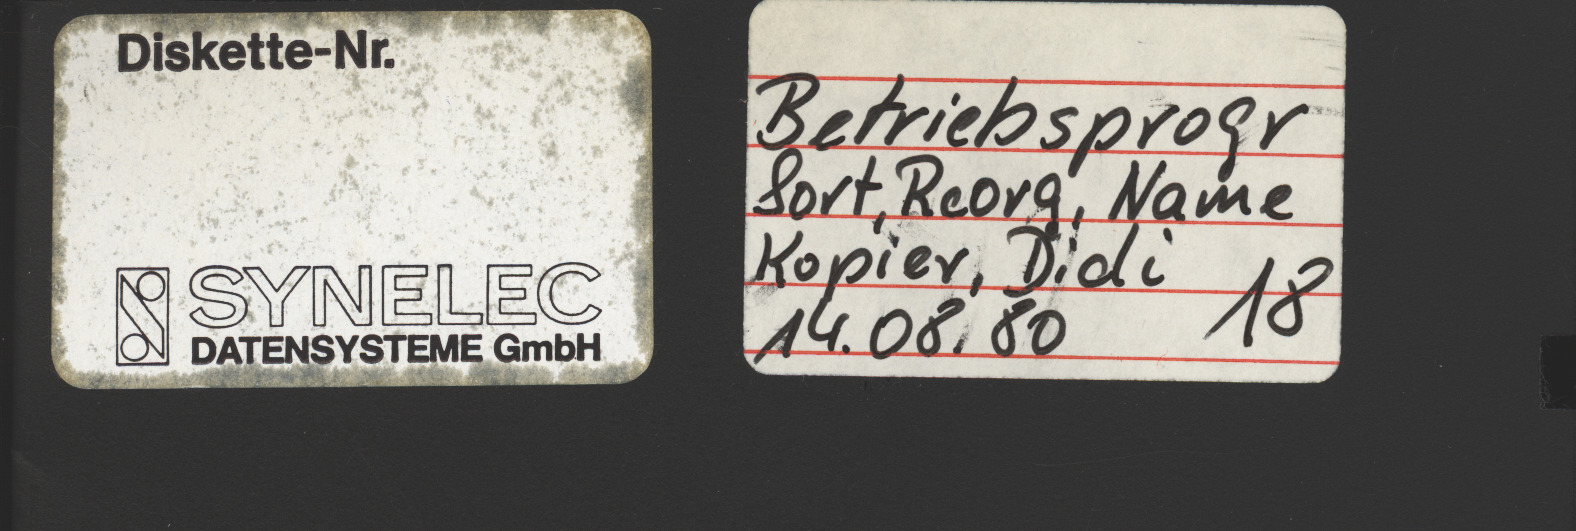 Diskette-Nr.
SYNELEC
DATENSYSTEME GmbH
Betriebsprogr
Sort, Reorg, Name
Kopier, Didi
14.08.80 18